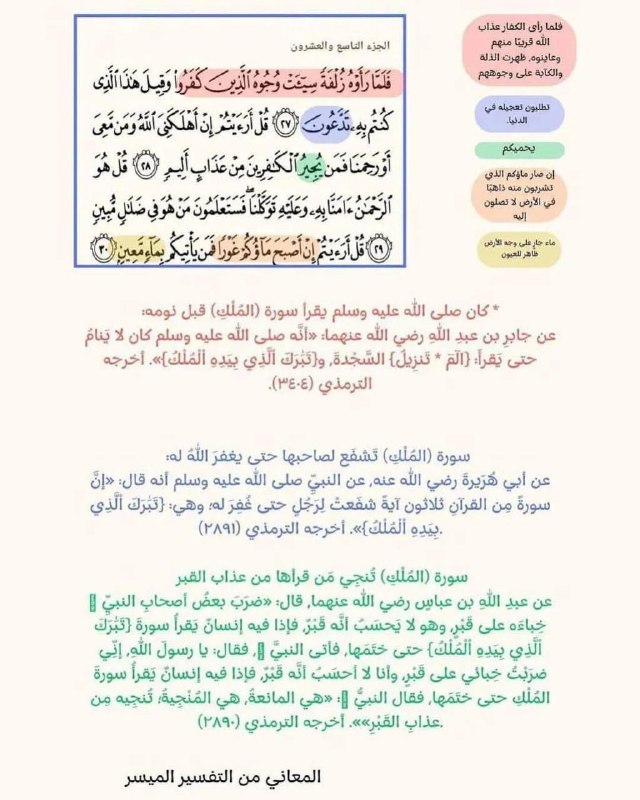 الجزء التاسع والعشرون
فَلَمَّا رَأَوْهُ زُلْفَةً سِيٓـَٔتْ وُجُوهُ ٱلَّذِينَ كَفَرُوا۟ وَقِيلَ هَٰذَا ٱلَّذِى
كُنتُم بِهِۦ تَدَّعُونَ ۝٢٧ قُلْ أَرَءَيْتُمْ إِنْ أَهْلَكَنِىَ ٱللَّهُ وَمَن مَّعِىَ
أَوْ رَحِمَنَا فَمَن يُجِيرُ ٱلْكَٰفِرِينَ مِنْ عَذَابٍ أَلِيمٍ ۝٢٨ قُلْ هُوَ
ٱلرَّحْمَٰنُ ءَامَنَّا بِهِۦ وَعَلَيْهِ تَوَكَّلْنَا ۖ فَسَتَعْلَمُونَ مَنْ هُوَ فِى ضَلَٰلٍ مُّبِينٍ
۝٢٩ قُلْ أَرَءَيْتُمْ إِنْ أَصْبَحَ مَآؤُكُمْ غَوْرًا فَمَن يَأْتِيكُم بِمَآءٍ مَّعِينٍۭ ۝٣٠
فلما رأى الكفار عذاب
الله قريبًا منهم
وعاينوه، ظهرت الذلة
والكآبة على وجوههم
تطلبون تعجيله في
الدنيا.
يحميكم
إن صار ماؤكم الذي
تشربون منه ذاهبًا
في الأرض لا تصلون
إليه
ماء جارٍ على وجه الأرض
ظاهر للعيون
* كان صلى الله عليه وسلم يقرأ سورة (المُلْكِ) قبل نومه:
عن جابرِ بن عبدِ اللهِ رضي الله عنهما: «أنَّه صلى الله عليه وسلم كان لا يَنامُ
حتى يَقرأَ: {الٓمٓ * تَنزِيلُ} السَّجْدةَ، و{تَبَٰرَكَ ٱلَّذِي بِيَدِهِ ٱلْمُلْكُ}». أخرجه
الترمذي (٣٤٠٤).
سورة (المُلْكِ) تَشفَع لصاحبها حتى يغفرَ اللهُ له:
عن أبي هُرَيرةَ رضي الله عنه، عن النبيِّ صلى الله عليه وسلم أنه قال: «إنَّ
سورةً مِن القرآنِ ثلاثون آيةً شفَعتْ لِرَجُلٍ حتى غُفِرَ له؛ وهي: {تَبَٰرَكَ ٱلَّذِي
بِيَدِهِ ٱلْمُلْكُ}». أخرجه الترمذي (٢٨٩١).
سورة (المُلْكِ) تُنجِي مَن قرأها من عذاب القبر
عن عبدِ اللهِ بن عباسٍ رضي الله عنهما، قال: «ضرَبَ بعضُ أصحابِ النبيِّ
خِباءَه على قَبْرٍ، وهو لا يَحسَبُ أنَّه قَبْرٌ، فإذا فيه إنسانٌ يَقرأُ سورةَ {تَبَٰرَكَ
ٱلَّذِي بِيَدِهِ ٱلْمُلْكُ} حتى ختَمَها، فأتى النبيَّ ، فقال: يا رسولَ اللهِ، إنِّي
ضرَبْتُ خِبائي على قَبْرٍ، وأنا لا أحسَبُ أنَّه قَبْرٌ، فإذا فيه إنسانٌ يَقرأُ سورةَ
المُلْكِ حتى ختَمَها، فقال النبيُّ : «هي المانعةُ، هي المُنْجِيةُ؛ تُنجِيه مِن
عذابِ القَبْرِ»». أخرجه الترمذي (٢٨٩٠).
المعاني من التفسير الميسر